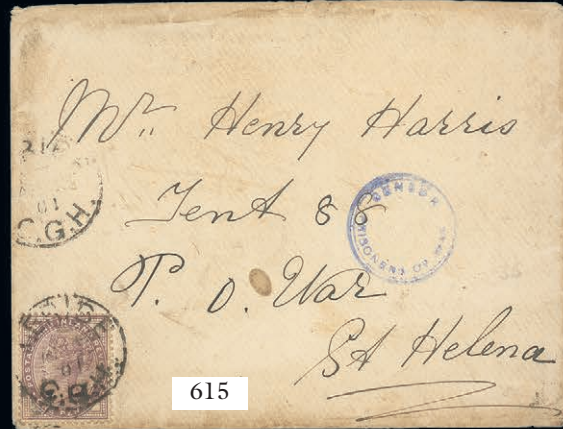 Mr. Henry Harris
Tent 88
P. O. War
St Helena
CENSOR
PRISONERS OF WAR
01
C.G.H.
01
615